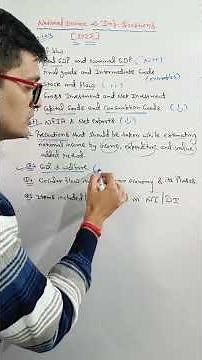 National Income → Imp. Questions
[2023]
Real GDP and Nominal GDP
Final goods and Intermediate Goods
Stock and flow
Gross Investment and Net Investment
Capital Goods and Consumption Goods (↓)
NFIA & Net Exports (↓)
Precautions that should be taken while estimating
national income by income, expenditure, and value
added method
GDP & welfare
Circular flow economy & its Phases
Items included in NI/DI